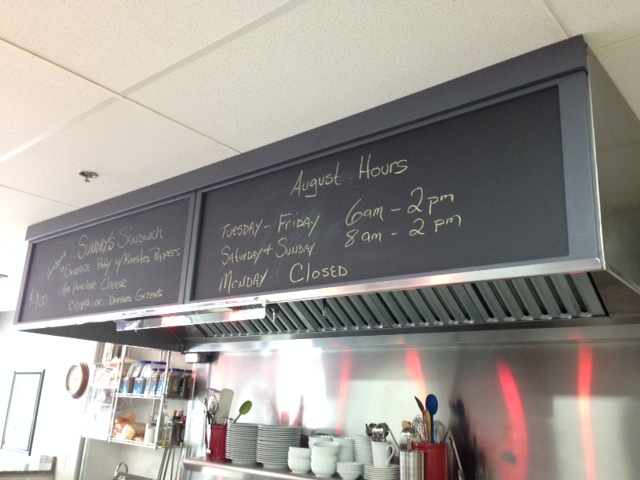 Sunday's Sandwich
Sausage Patty w/ Roasted Peppers
and Provolone Cheese
Chips or Dressed Greens
$9.00
August Hours
Tuesday - Friday 6am - 2pm
Saturday + Sunday 8am - 2pm
Monday Closed